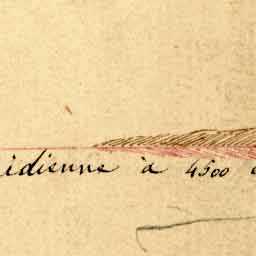 idienne à 4500